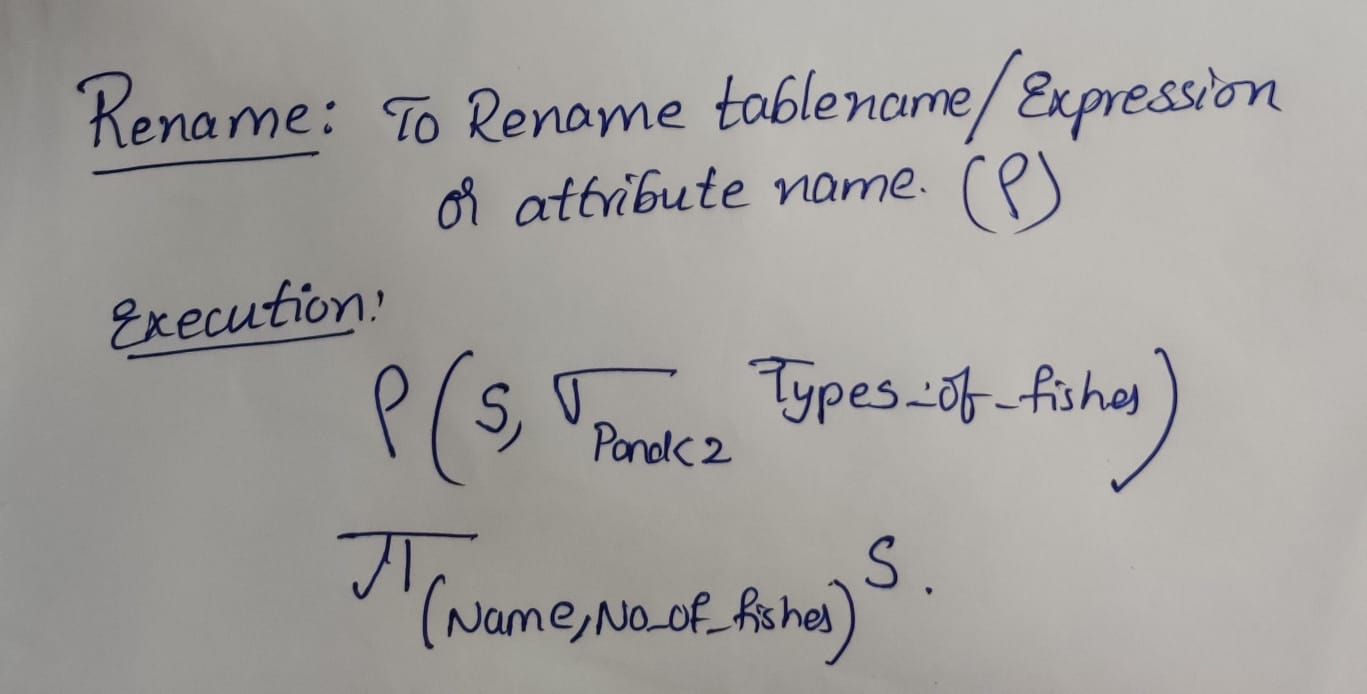 Rename: To Rename tablename/Expression
or attribute name. (ρ)
Execution:
ρ(S, σ Pond<2 Types_of_fishes)
π(Name, No_of_fishes) S.